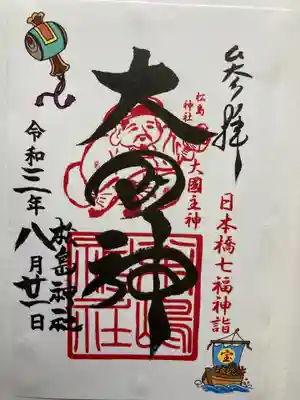 奉拝
日本橋七福神詣
松島
神社
大國主神
大国神
松島神社
令和三年八月廿一日
宝